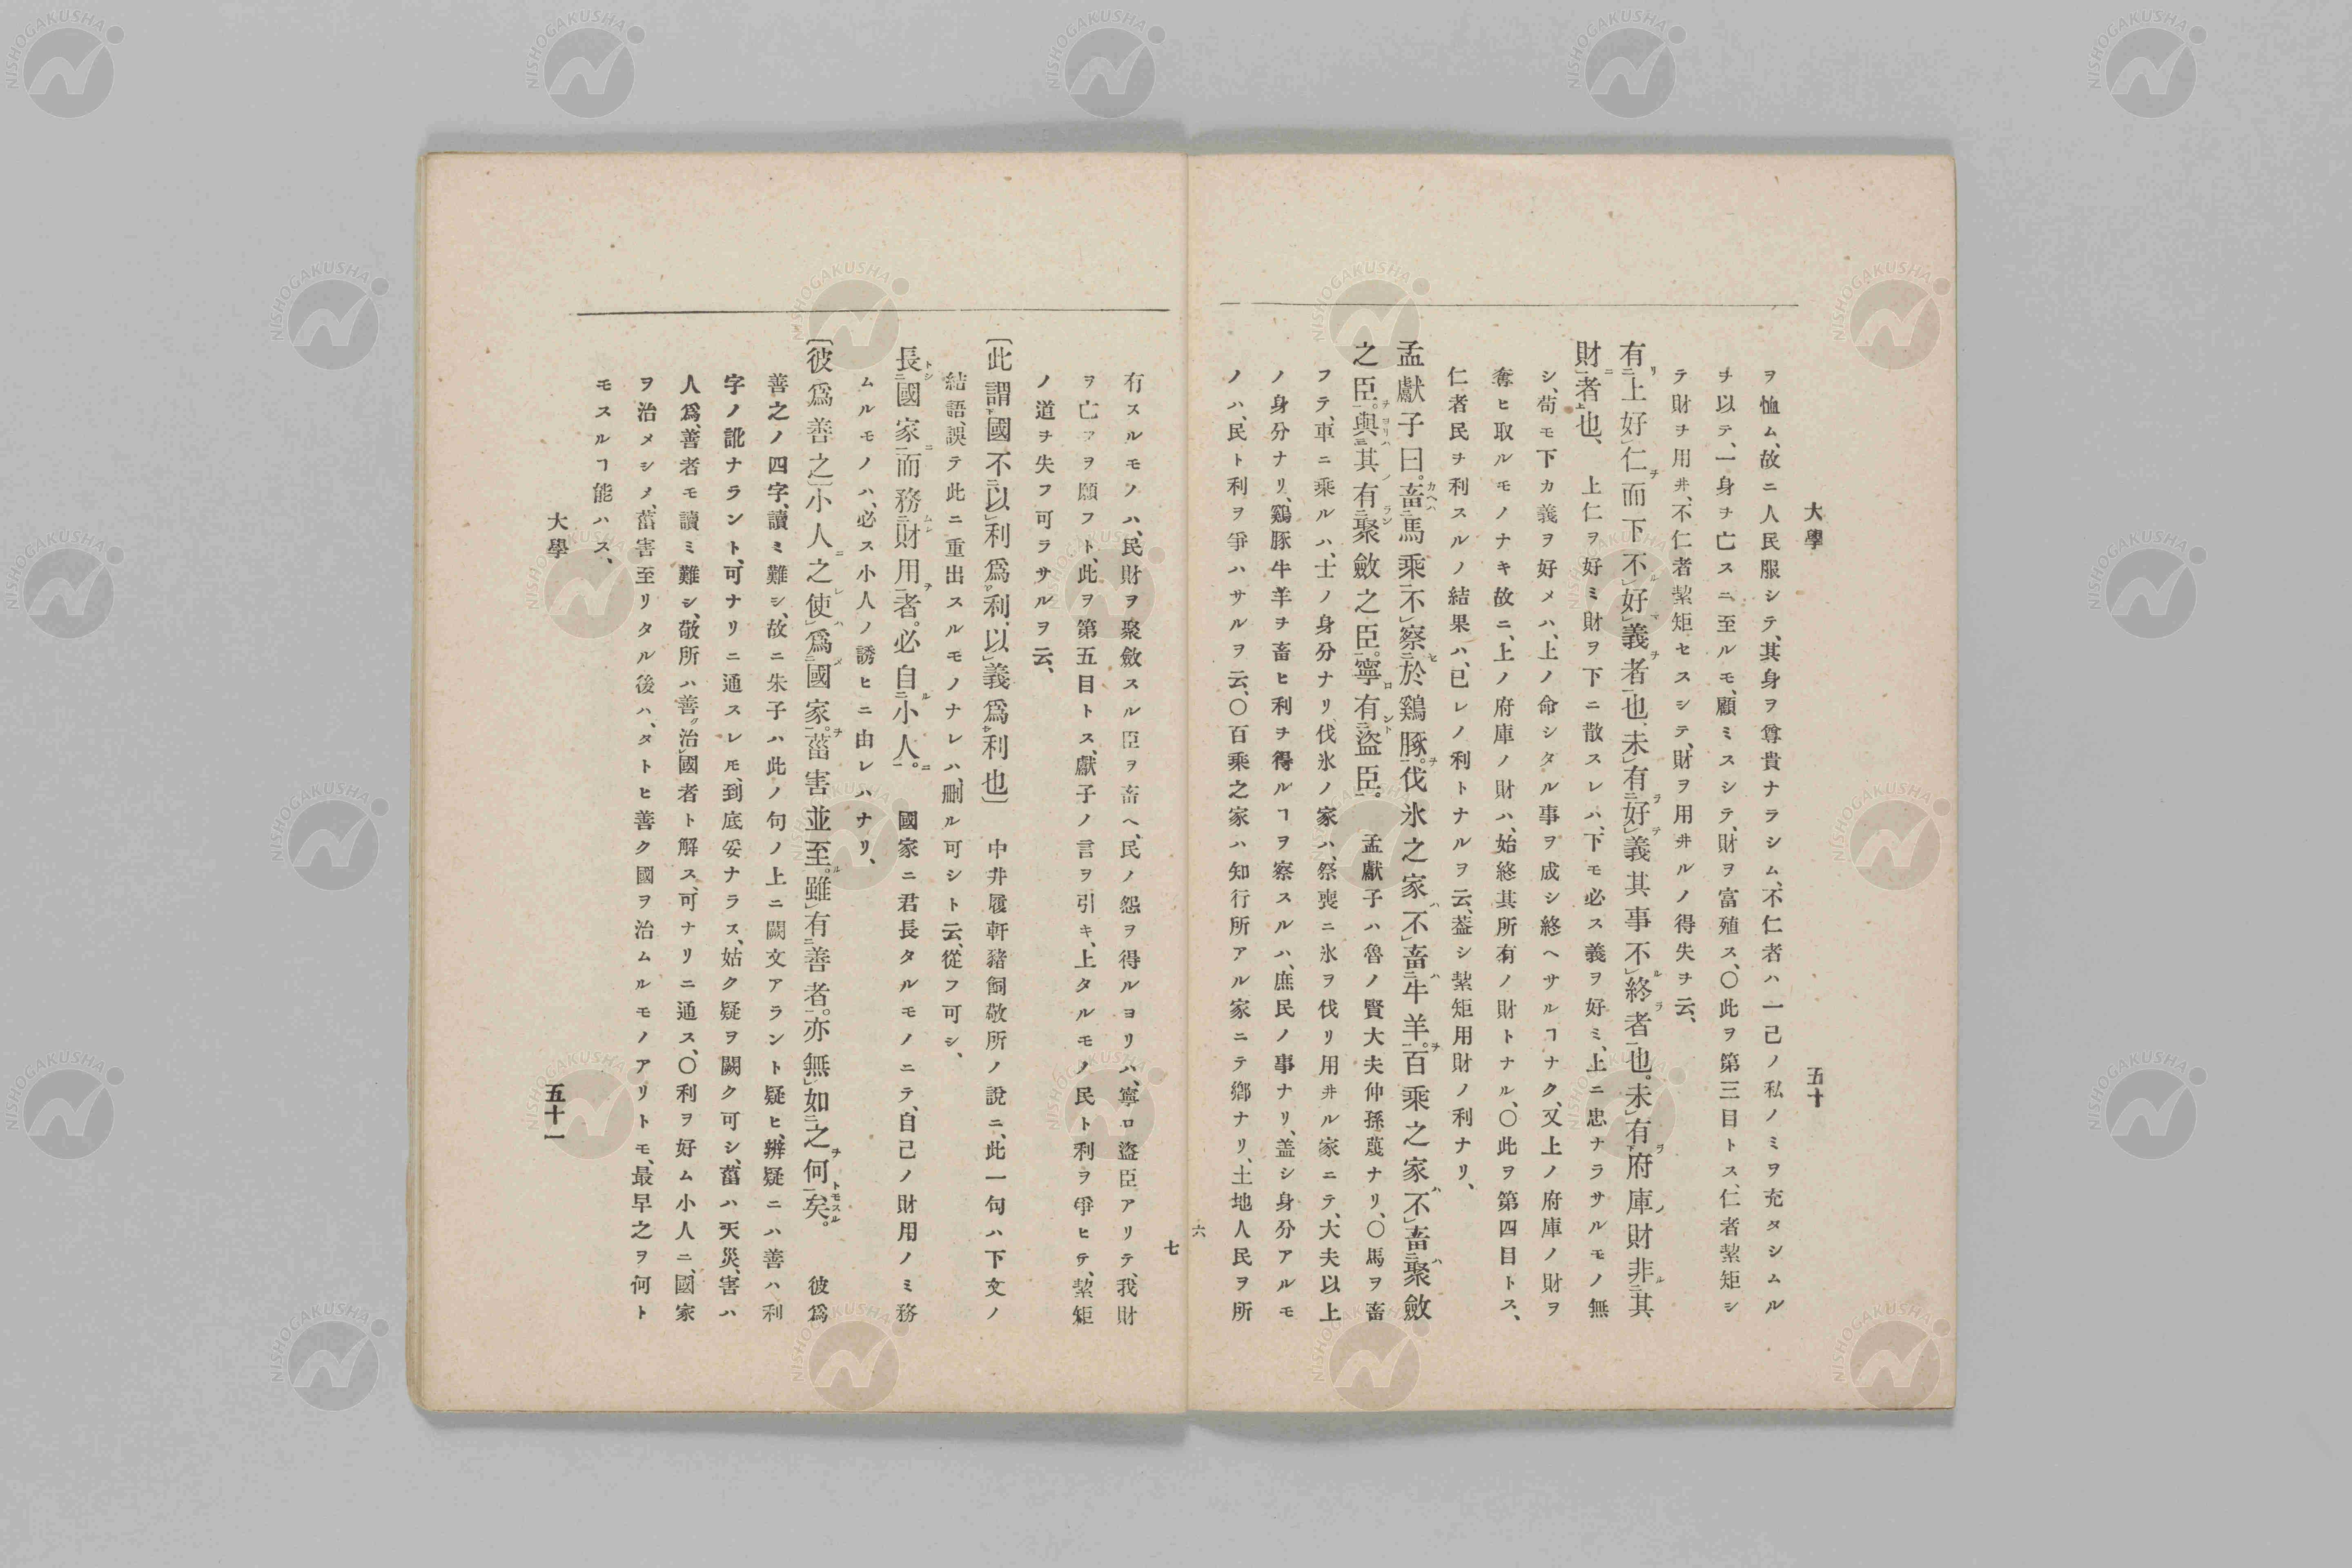 大學
五十
ヲ恤ム、故ニ人民服シテ、其身ヲ尊貴ナラシム、不仁者ハ一己ノ私ノミヲ充タシムル
チ以テ、一身チ亡スニ至ルモ、顧ミスシテ、財ヲ富殖ス、〇此ヲ第三目トス、仁者絜矩シ
テ財チ用井、不仁者絜矩セスシテ、財ヲ用井ルノ得失ヲ云、
有上好仁而下不好義者也、未有好義其事不終者也。未有府庫財非其
財者也、 上仁ヲ好ミ財ヲ下ニ散スレハ、下モ必ス義ヲ好ミ、上ニ忠ナラサルモノ無
シ、苟モ下カ義ヲ好メハ、上ノ命シタル事ヲ成シ終ヘサルヿナク、又上ノ府庫ノ財ヲ
奪ヒ取ルモノナキ故ニ、上ノ府庫ノ財ハ、始終其所有ノ財トナル、〇此ヲ第四目トス、
仁者民ヲ利スルノ結果ハ、已レノ利トナルヲ云、葢シ絜矩用財ノ利ナリ、
孟獻子曰。畜馬乘不察於鷄豚。伐氷之家不畜牛羊。百乘之家不畜聚斂
之臣。與其有聚斂之臣。寧有盜臣。 孟獻子ハ魯ノ賢大夫仲孫蔑ナリ、〇馬ヲ畜
フテ、車ニ乘ルハ、士ノ身分ナリ、伐氷ノ家ハ、祭喪ニ氷ヲ伐リ用井ル家ニテ、大夫以上
ノ身分ナリ、鷄豚牛羊ヲ畜ヒ利ヲ得ルヿヲ察スルハ、庶民ノ事ナリ、盖シ身分アルモ
ノハ、民ト利ヲ爭ハサルヲ云、〇百乘之家ハ知行所アル家ニテ鄕ナリ、土地人民ヲ所
六
七
有スルモノハ、民財ヲ聚斂スル臣ヲ畜ヘ、民ノ怨ヲ得ルヨリハ、寧ロ盜臣アリテ、我財
ヲ亡フヲ願フト、此ヲ第五目トス、獻子ノ言ヲ引キ、上タルモノ民ト利ヲ爭ヒテ、絜矩
ノ道ヲ失フ可ラサルヲ云、
〔此謂國不以利爲利、以義爲利也〕 中井履軒豬飼敬所ノ說ニ、此一句ハ下文ノ
結語、誤テ此ニ重出スルモノナレハ、刪ル可シト云、從フ可シ、
長國家而務財用者。必自小人。 國家ニ君長タルモノニテ、自己ノ財用ノミ務
ムルモノハ、必ス小人ノ誘ヒニ由レハナリ、
〔彼爲善之〕小人之使爲國家。菑害並至。雖有善者。亦無如之何矣。 彼爲
善之ノ四字、讀ミ難シ、故ニ朱子ハ此ノ句ノ上ニ闕文アラント疑ヒ、辨疑ニハ善ハ利
字ノ訛ナラント、可ナリニ通スレㇳモ、到底妥ナラス、姑ク疑ヲ闕ク可シ、菑ハ天災、害ハ
人爲、善者モ讀ミ難シ、敬所ハ善ク治國者ト解ス、可ナリニ通ス、〇利ヲ好ム小人ニ、國家
ヲ治メシメ、菑害至リタル後ハ、タトヒ善ク國ヲ治ムルモノアリトモ、最早之ヲ何ト
モスルヿ能ハス、
大學
五十一